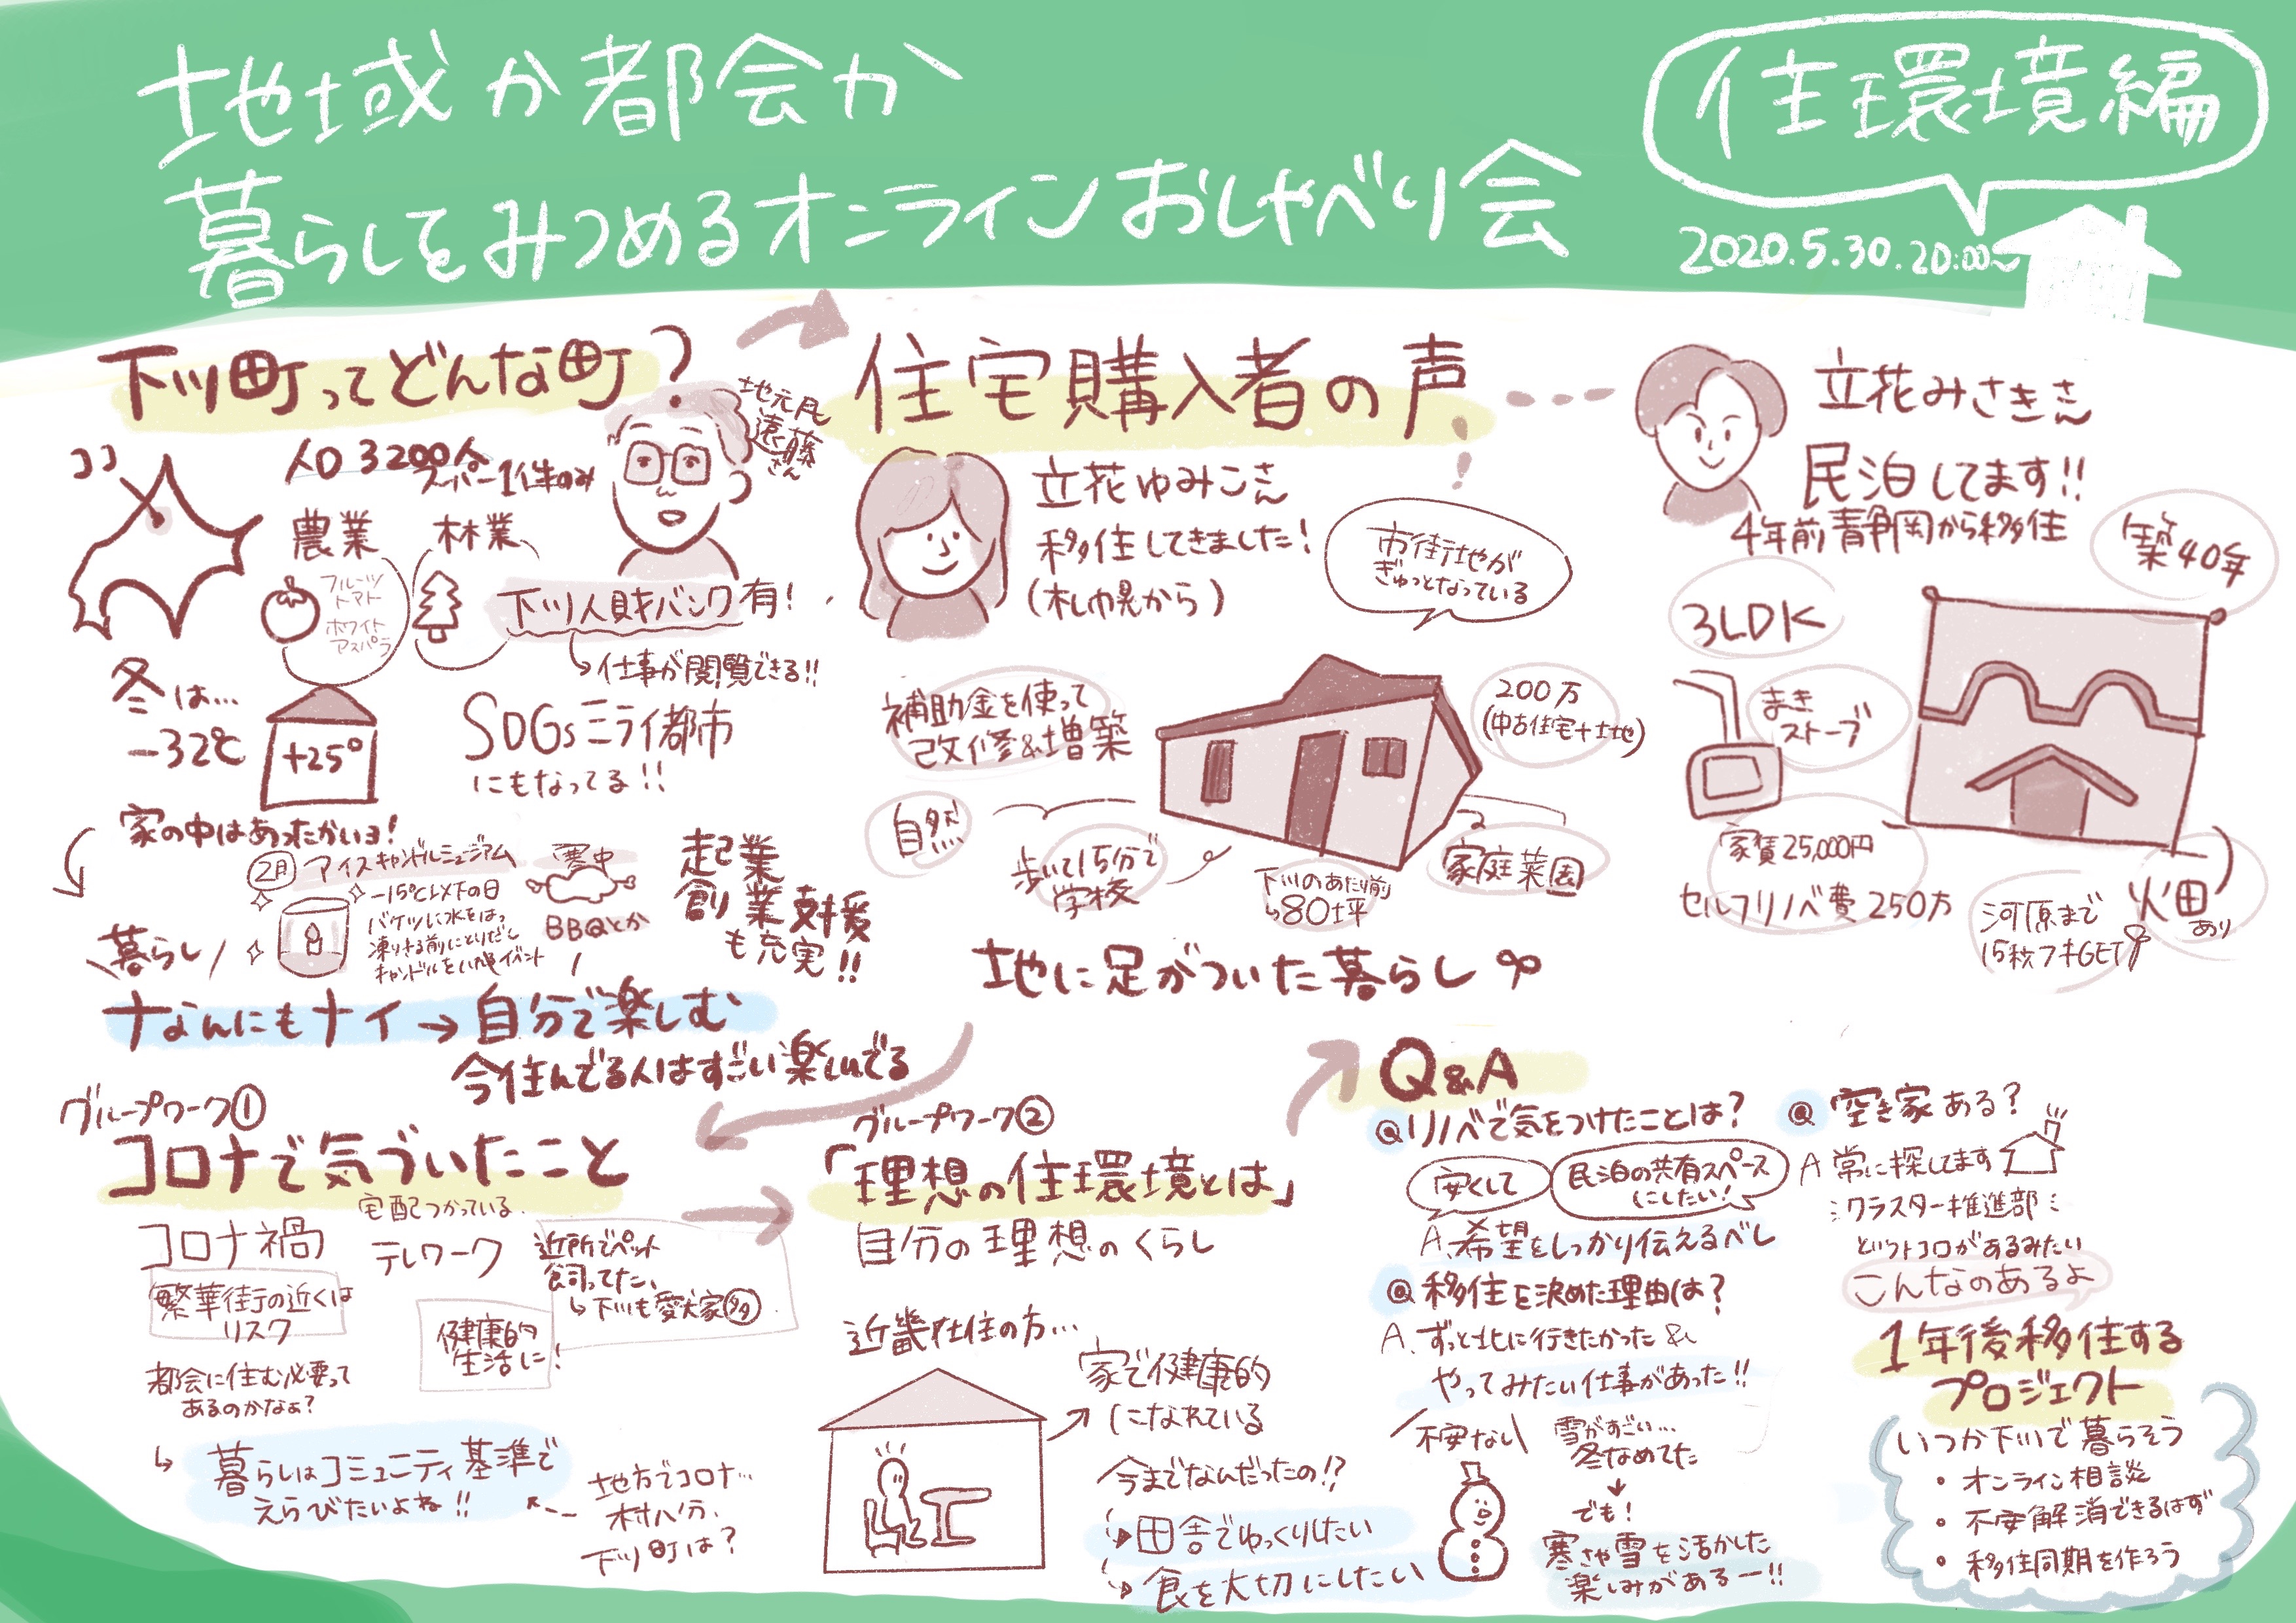 地域か都会か
暮らしをみつめるオンラインおしゃべり会
住環境編
2020.5.30.20:00〜
下川町ってどんな町?
ココ
人口3200人
スーパー1件のみ
地元民
遠藤さん
農業
フルーツ
トマト
ホワイト
アスパラ
林業
下川人財バンク有!
↳仕事が閲覧できる!!
冬は…
-32℃
+25°
家の中はあったかいヨ!
SDGsミライ都市
にもなってる!!
2月
アイスキャンドルミュージアム
-15℃以下の日
バケツに水をはっ
凍りきる前にとりだし
寒中
BBQとか
起業
創業支援
も充実!!
暮らし
なんにもナイ→自分で楽しむ
今住んでる人はすごい楽しんでる
住宅購入者の声
立花ゆみこさん
移住してきました!
(札幌から)
市街地が
ぎゅっとなっている
補助金を使って
改修&増築
200万
(中古住宅+土地)
自然
歩いて15分で
学校
下川のあたり前
↳80坪
家庭菜園
地に足がついた暮らし
立花みさきさん
民泊してます!!
4年前静岡から移住
築40年
3LDK
まき
ストーブ
家賃25,000円
セルフリノベ費250万
河原まで
15秒フキGET
畑
あり
グループワーク①
コロナで気づいたこと
コロナ禍
宅配つかっている
テレワーク
近所でペット
飼ってた、
↳下川も愛犬家多
繁華街の近くは
リスク
健康的
生活に!
都会に住む必要って
あるのかなぁ?
↳暮らしはコミュニティ基準で
えらびたいよね!!
地方でコロナ…
村八分、
下川町は?
グループワーク②
「理想の住環境とは」
自分の理想のくらし
近畿在住の方…
家で健康的
になれている
今までなんだったの!?
田舎でゆっくりしたい
食を大切にしたい
Q&A
Qリノベで気をつけたことは?
安くして
民泊の共有スペース
にしたい!
A.希望をしっかり伝えるべし
Q移住を決めた理由は?
A.ずっと北に行きたかった&
やってみたい仕事があった!!
不安ない
雪がすごい…
冬なめてた
↓
でも!
寒さや雪を活かした
楽しみがあるー!!
Q空き家ある?
A常に探してます
クラスター推進部
というトコロがあるみたい
こんなのあるよ
1年後移住する
プロジェクト
いつか下川で暮らそう
・オンライン相談
・不安解消できるはず
・移住同期を作ろう